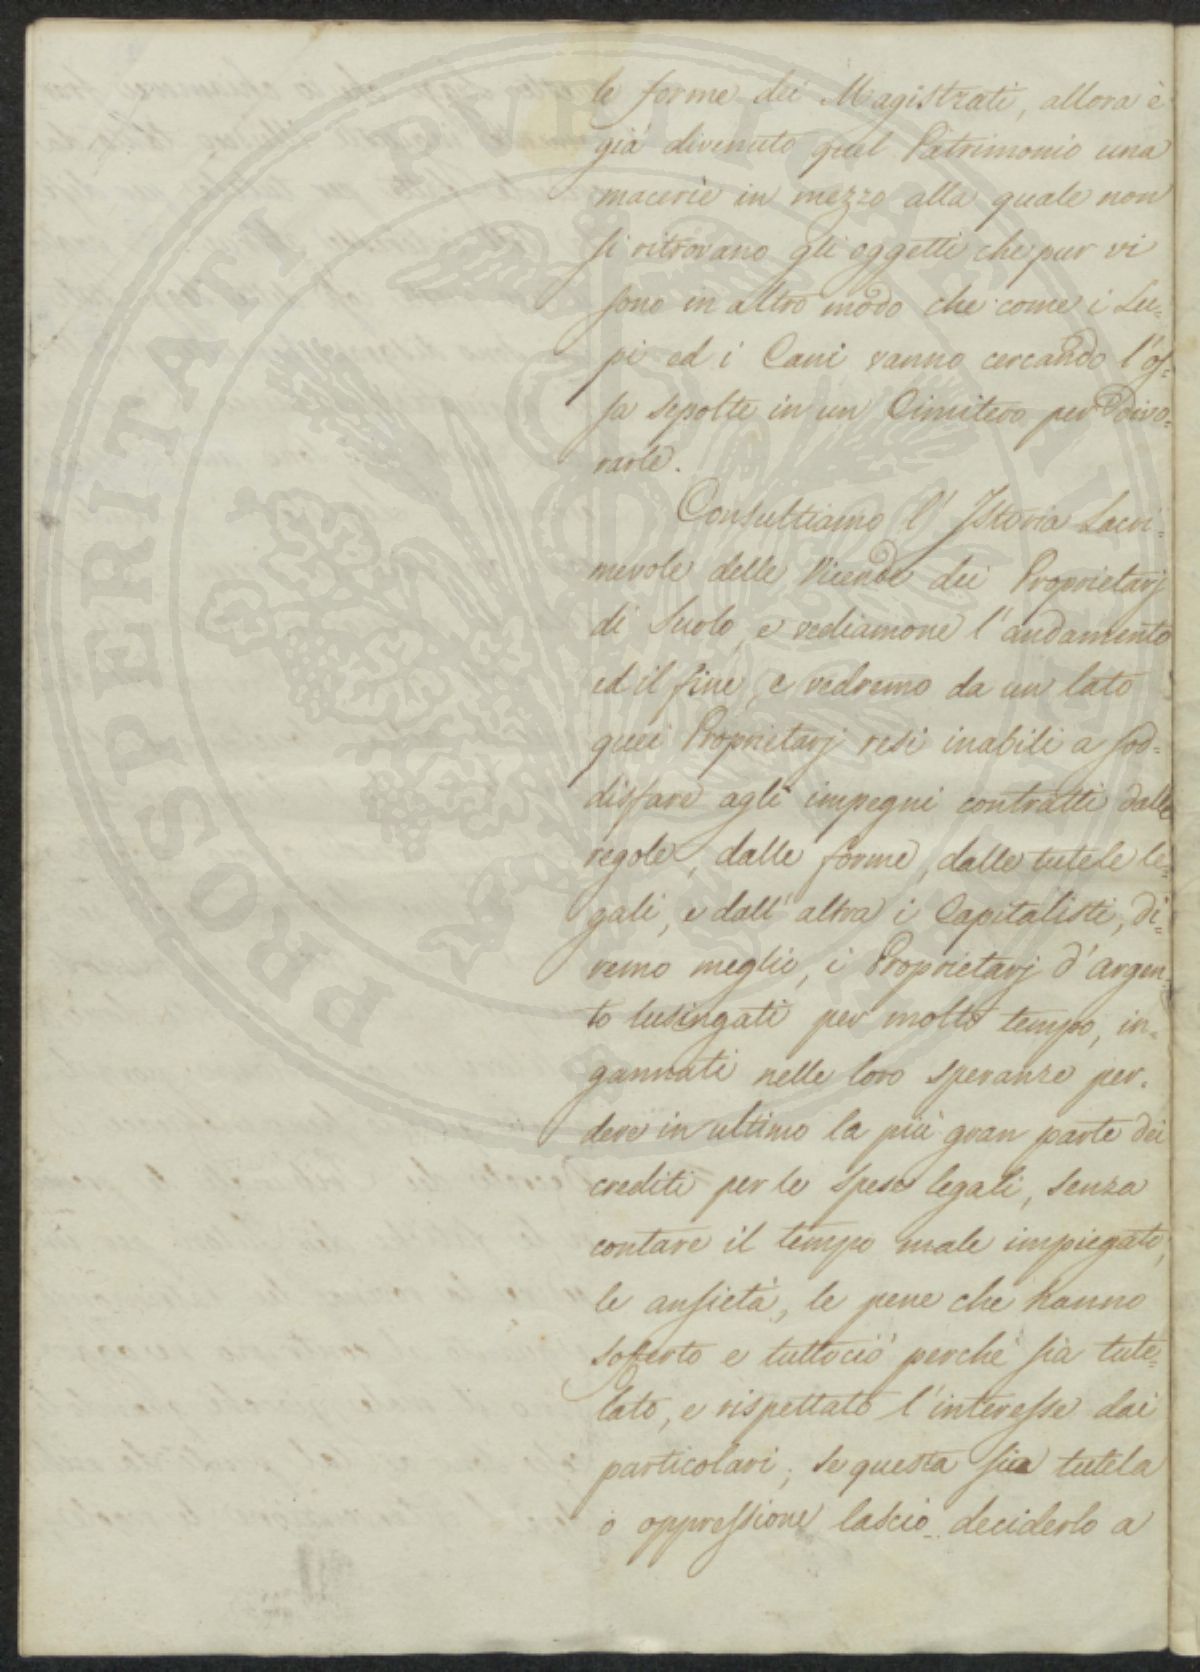 le forme dei Magistrati, allora è
già divenuto quel Patrimonio una
macerie in mezzo alla quale non
si ritrovano gli oggetti che pur vi
sono in altro modo che come i Lu-
pi ed i Cani vanno cercando l'os-
sa sepolte in un Cimitero per divo-
rarle.
Consultiamo l'Istoria Lacri-
mevole delle Vicende dei Proprietarj
di Suolo, e vediamone l'andamento
ed il fine, e vedremo da un lato
quei Proprietarj resi inabili a sod-
disfare agli impegni contratti dalle
regole, dalle forme, dalle tutele le-
gali, e dall'altra i Capitalisti, di-
remo meglio, i Proprietarj d'argen-
to lusingati per molto tempo, in-
gannati nelle loro speranze per-
dere in ultimo la più gran parte dei
crediti per le spese legali, senza
contare il tempo male impiegato,
le ansietà, le pene che hanno
soferto e tuttociò perchè sia tute-
lato, e rispettato l'interesse dai
particolari; se questa sia tutela
o oppressione lascio deciderlo a
PROSPERITATI PVBLICAE